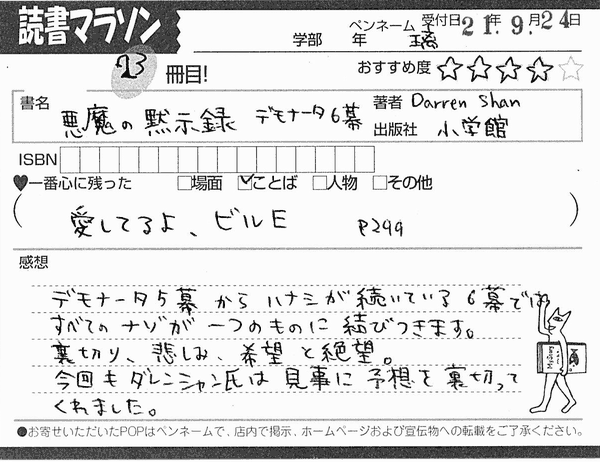 読書マラソン
学部 年 ペンネーム 璃 受付日 21年 9.月 24日
23 冊目!
おすすめ度 ☆☆☆☆☆
書名 悪魔の黙示録 デモナータ6幕
著者 Darren Shan
出版社 小学館
ISBN
♥一番心に残った □場面 ☑ことば □人物 □その他
(愛してるよ、ビルE P299)
感想
デモナータ5幕からハナシが続いている6幕では
すべてのナゾが一つのものに結びつきます。
裏切り、悲しみ、希望と絶望。
今回もダレンシャン氏は見事に予想を裏切って
くれました。
●お寄せいただいたPOPはペンネームで、店内で掲示、ホームページおよび宣伝物への転載をご了承ください。